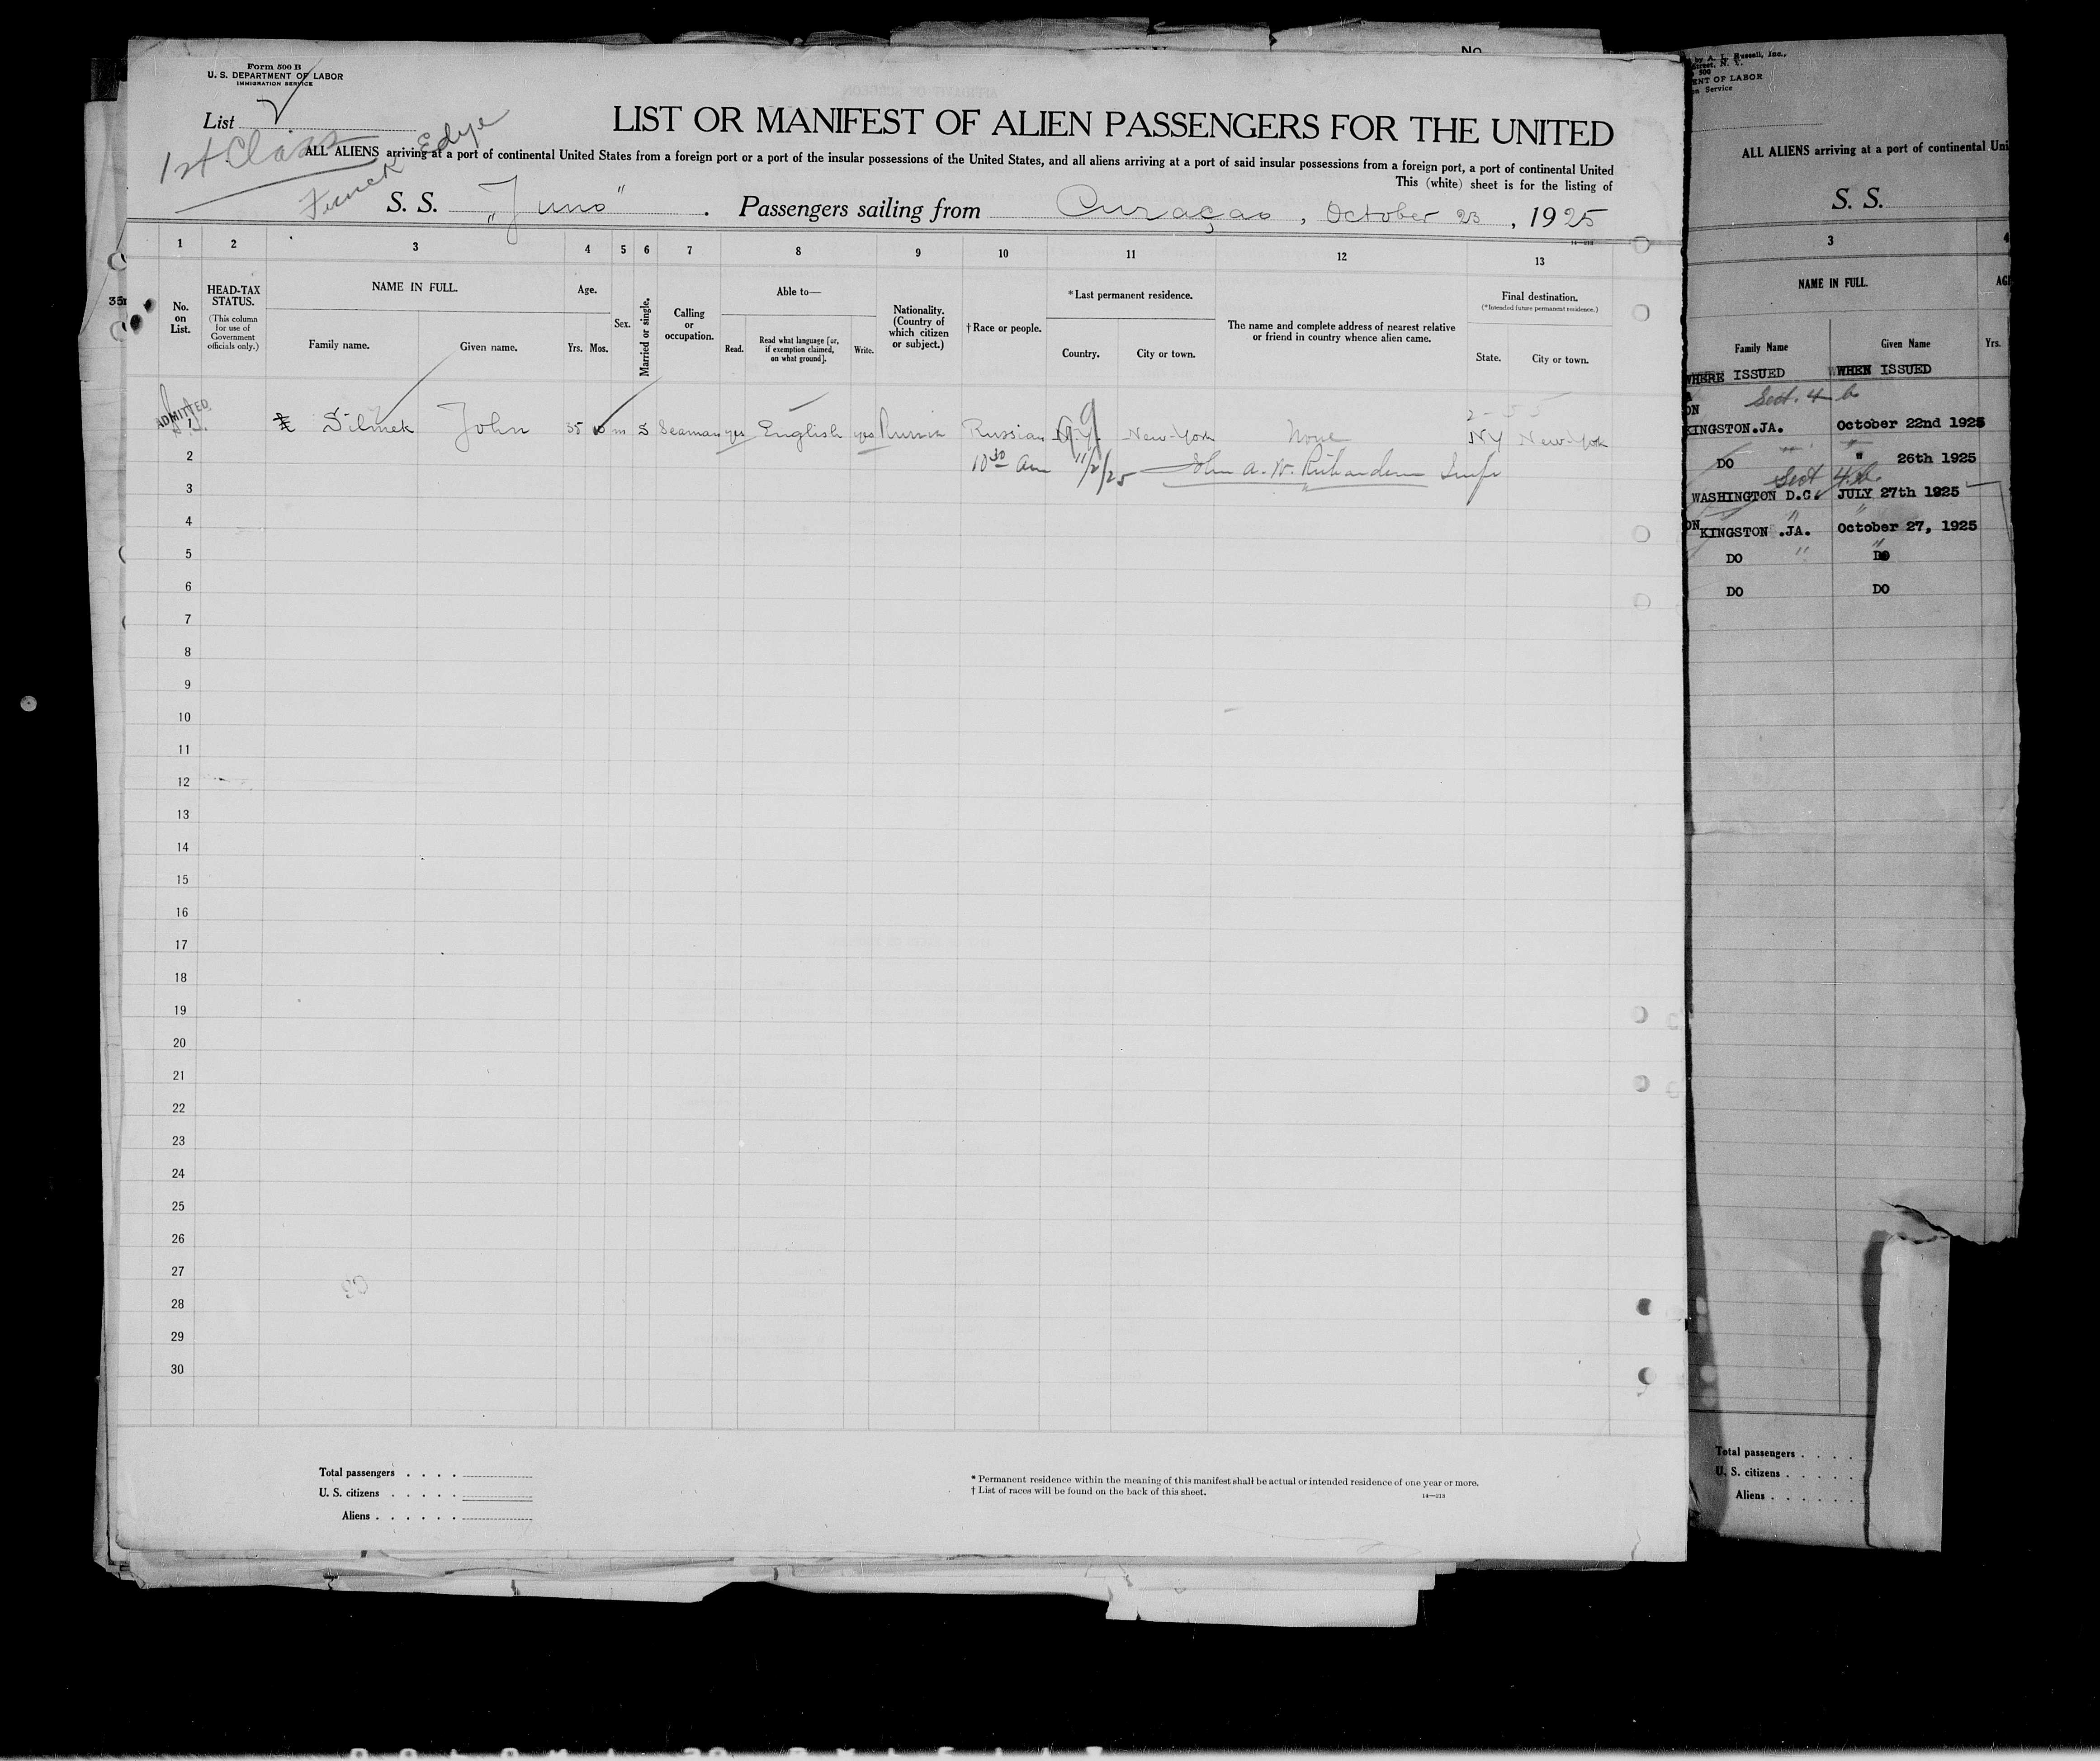 Form 500 B
U. S. DEPARTMENT OF LABOR
IMMIGRATION SERVICE
List
1st Class
Funch Edye
LIST OR MANIFEST OF ALIEN PASSENGERS FOR THE UNITED
ALL ALIENS arriving at a port of continental United States from a foreign port or a port of the insular possessions of the United States, and all aliens arriving at a port of said insular possessions from a foreign port, a port of continental United
This (white) sheet is for the listing of
S. S. „Juno" . Passengers sailing from Curaçao, October 23, 1925
14—213
1 2 3 4 5 6 7 8 9 10 11 12 13
No. on List.
HEAD-TAX STATUS.
(This column for use of Government officials only.)
NAME IN FULL.
Family name. Given name.
Age.
Yrs. Mos.
Sex.
Married or single.
Calling or occupation.
Able to—
Read.
Read what language [or, if exemption claimed, on what ground].
Write.
Nationality. (Country of which citizen or subject.)
† Race or people.
* Last permanent residence.
Country. City or town.
The name and complete address of nearest relative or friend in country whence alien came.
Final destination.
(* Intended future permanent residence.)
State. City or town.
ADMITTED
1 Silmek John 35 m S Seaman yes English yes Russia Russian N.Y. New-York None NY New-York
2 10 30 am 11/2/25 John A. W. Richardson Insp
3
4
5
6
7
8
9
10
11
12
13
14
15
16
17
18
19
20
21
22
23
24
25
26
27
28
29
30
Total passengers . . . .
U. S. citizens . . . . .
Aliens . . . . . .
* Permanent residence within the meaning of this manifest shall be actual or intended residence of one year or more.
† List of races will be found on the back of this sheet.
14—213
No.
by A. L. Russell, Inc.,
Street, N. Y.
500
ENT OF LABOR
on Service
ALL ALIENS arriving at a port of continental Uni
S. S.
3 4
NAME IN FULL.
Family Name Given Name Yrs.
WHERE ISSUED WHEN ISSUED
Sect. 4 b
KINGSTON.JA. October 22nd 1925
DO " 26th 1925
Sect 4 b.
WASHINGTON D.C. JULY 27th 1925
KINGSTON .JA. October 27, 1925
DO DO
DO DO
Total passengers . . . .
U. S. citizens . . . . .
Aliens . . . . . .